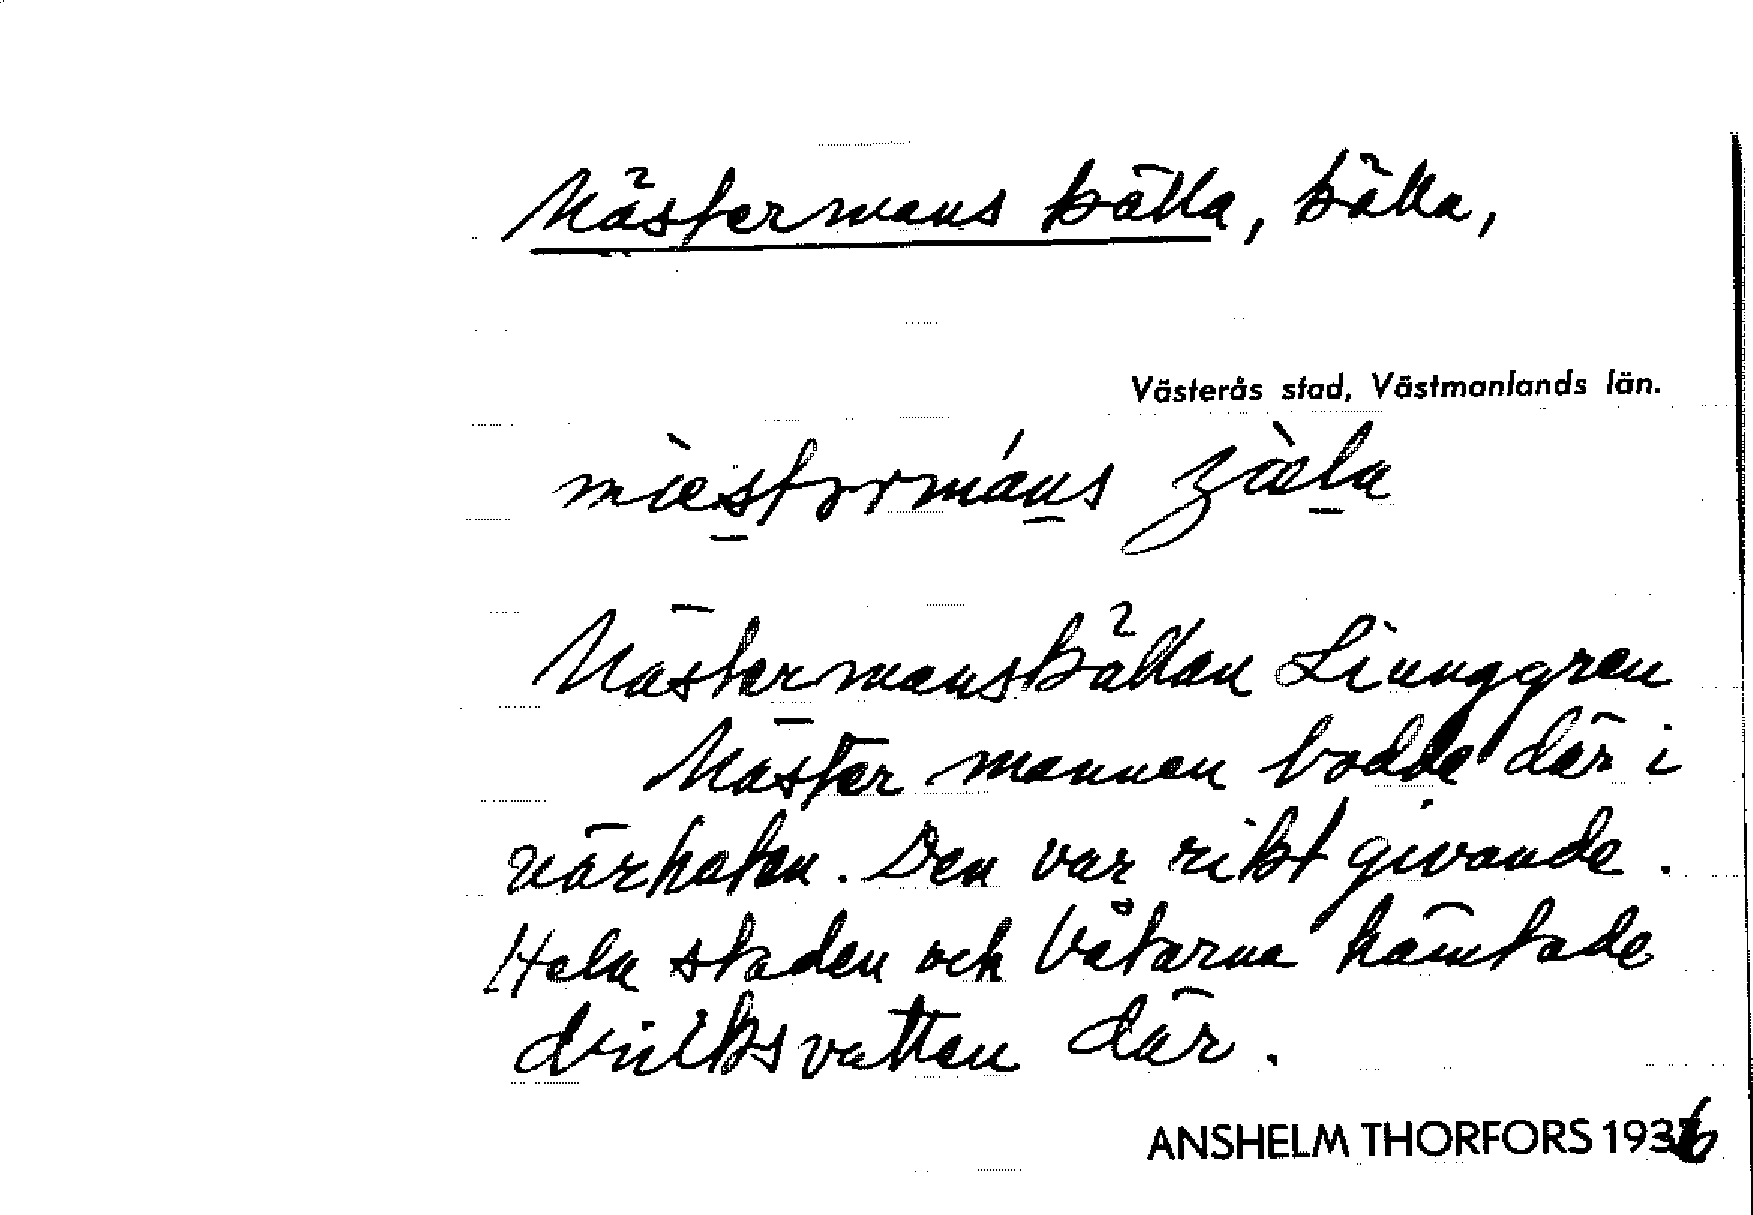 Mästermans källa, källa,
Västerås stad, Västmanlands län.
Mästermanskällan Liunggren
Mäster mannen bodde där i
närheten. Den var rikt givande.
Hela staden och båtarna hämtade
dricksvatten där.
ANSHELM THORFORS 1936